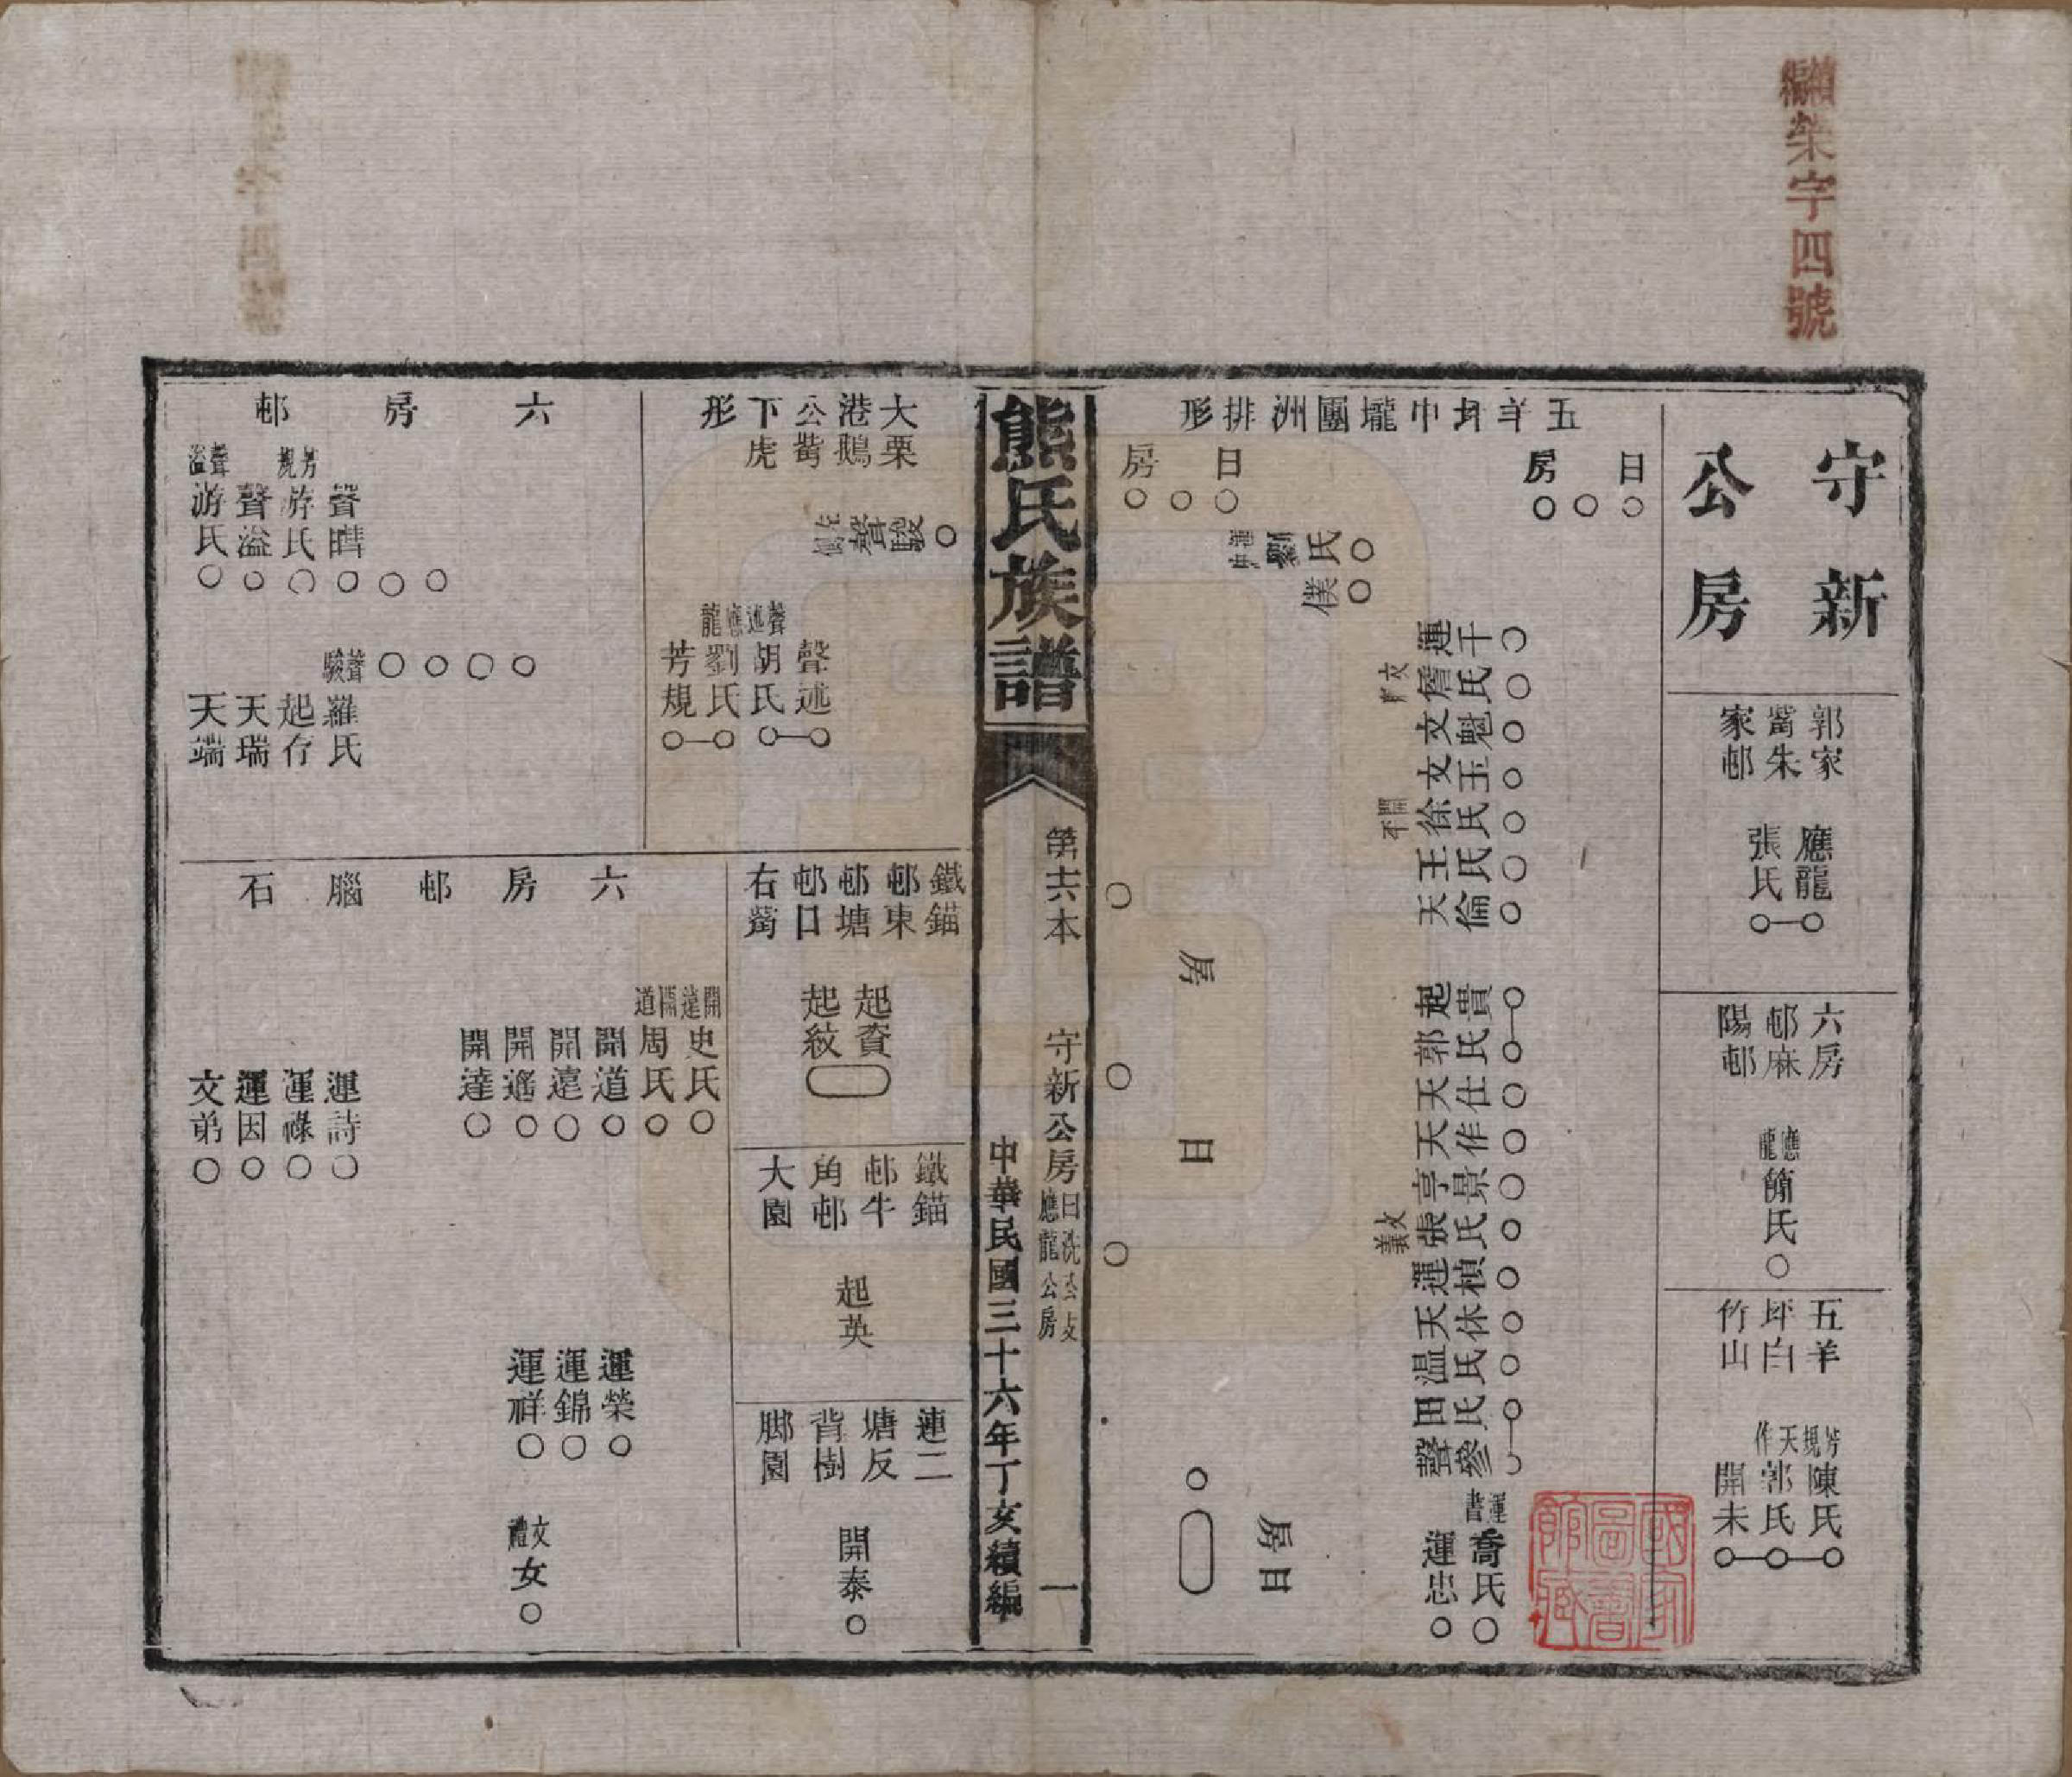 續編榮字四號
守新
公房
郭家
嘴朱
家邨
應龍
張氏
六房
邨麻
陽邨
應龍
簡氏
五羊
坪白
竹山
芳規陳氏
天作郭氏
開未
五羊坪中壠團洲排形
日
房
運千
文
詹氏
文魁
文玉
開平
徐氏
王氏
天倫
起貴
郭氏
天仕
天作
亭景
文義
張氏
運楨
天休
温氏
田氏
聲參
運書
喬氏
運忠
日
房
劉氏
僕
房
日
房日
國家圖書館藏
熊氏族譜
第六本
守新公房
日洗公支
應龍公房
一
中華民國三十六年丁亥續編
大栗
港鵝
公嘴
下虎
形
左側
聲駿
聲述
聲述
胡氏
應龍
劉氏
芳規
六房邨
聲暳
芳規
游氏
聲溢
聲溢
游氏
聲駿
羅氏
起存
天瑞
天端
鐵錨
邨東
邨塘
邨口
右
起資
起紋
鐵錨
邨牛
角邨
大園
起英
連二
塘反
背樹
脚園
開泰
六房邨腦石
開遠
史氏
開道
周氏
開道
開遠
開遙
開達
運詩
運祿
運因
文弟
運榮
運錦
運祥
文禮
女